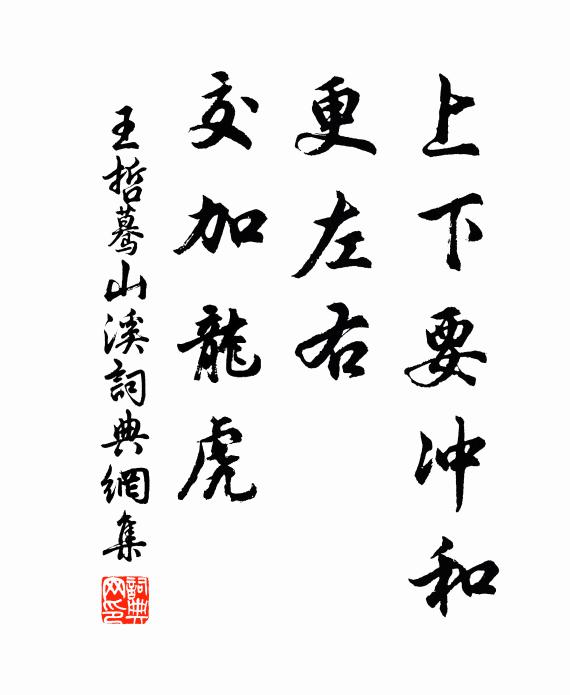 上下要冲和
更左右
交加龍虎
王哲蓦山溪詞典網集
詞典网印